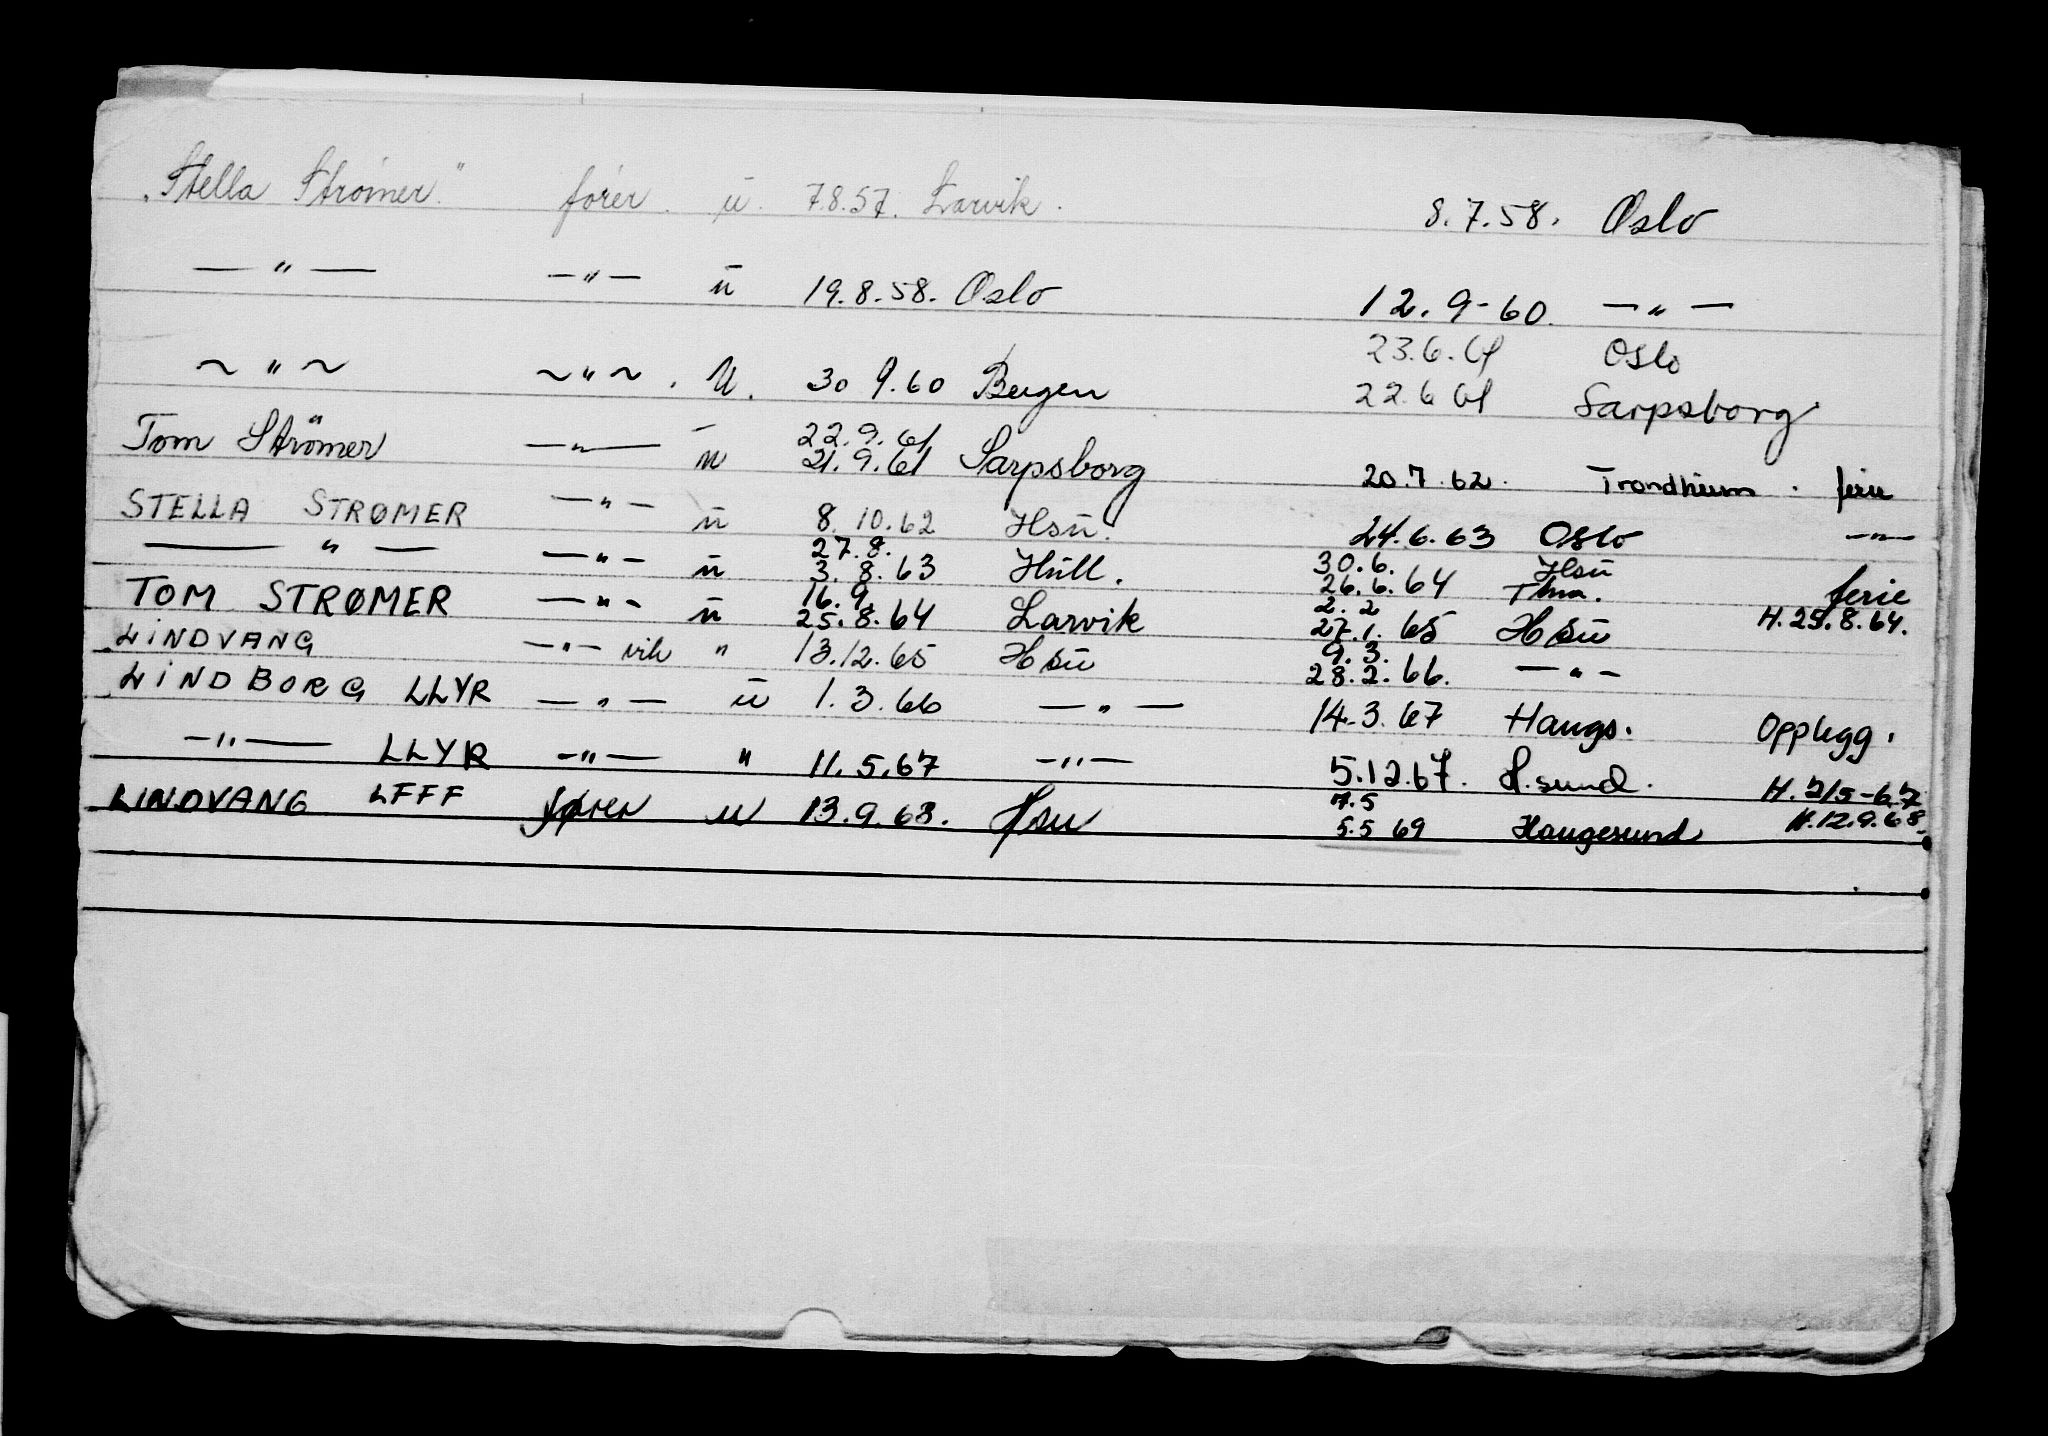 „Stella Strömer" fører. u. 7.8.57. Larvik. 8.7.58. Oslo
— " — — " — u 19.8.58. Oslo 12.9-60. — " —
~ " ~ ~ " ~ . U. 30 9.60 Bergen 23.6.61 Oslo
22.6 61 Sarpsborg
Tom Strömer — " — u 22.9.61
21.9.61 Sarpsborg 20.7.62. Trondheim. ferie
STELLA STRØMER — " — u 8.10.62 Hsu. 24.6.63 Oslo — " —
— " — — " — u 27.8.
3.8.63 Hull. 30.6. Hsu
26.6.64 Thm. ferie
TOM STRØMER — " — u 16.9.
25.8.64 Larvik 2.2
27.1.65 Hsu H.25.8.64.
LINDVANG — " — vik " 13.12.65 Hsu 9.3.
28.2.66. — " —
LINDBORG LLYR — " — u 1.3.66 — " — 14.3.67 Haugs. Opplegg.
— " — LLYR — " — " 11.5.67 — " — 5.12.67. H.sund. H.2/5-67
LINDVANG LFFF fører u 13.9.68. Hsu 7.5
5.5 69 Haugesund H.12.9.68